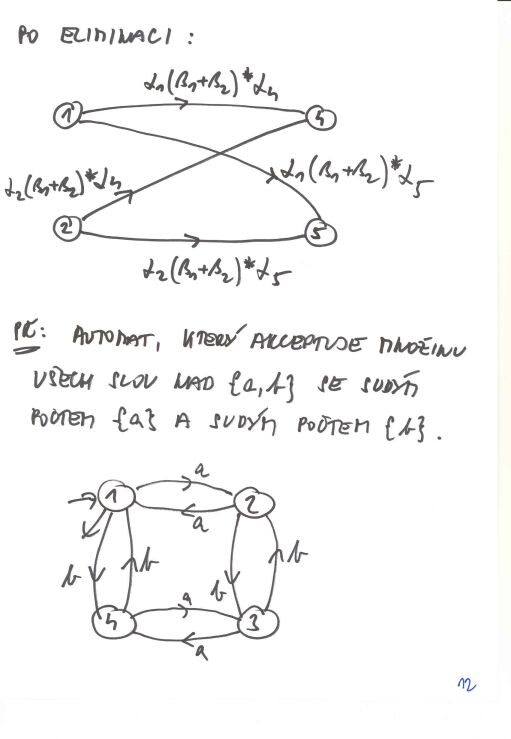 PO ELIMINACI :
α₁(β₁+β₂)*α₄
1
4
α₂(β₁+β₂)*α₄
α₁(β₁+β₂)*α₅
2
5
α₂(β₁+β₂)*α₅
PŘ: AUTOMAT, KTERÝ AKCEPTUJE MNOŽINU
VŠECH SLOV NAD {a,b} SE SUDÝM
POČTEM {a} A SUDÝM POČTEM {b}.
a
1
2
a
b
b
b
b
a
4
3
a
12